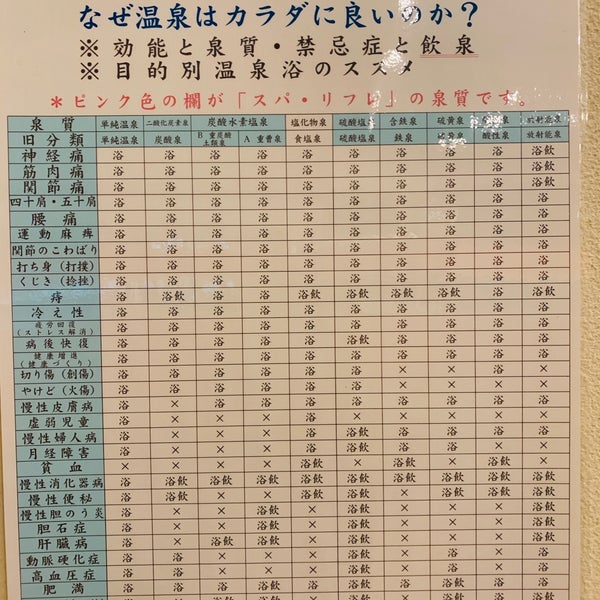 なぜ温泉はカラダに良いのか?
※効能と泉質・禁忌症と飲泉
※目的別温泉浴のススメ
*ピンク色の欄が「スパ・リフレ」の泉質です。
泉質 単純温泉 二酸化炭素泉 炭酸水素塩泉 塩化物泉 硫酸塩泉 含鉄泉 硫黄泉 放射能泉
旧分類 単純温泉 炭酸泉 B 重炭酸土類泉 A 重曹泉 食塩泉 硫酸塩泉 鉄泉 酸性泉 放射能泉
神経痛 浴 浴 浴 浴 浴 浴 浴 浴 浴 浴飲
筋肉痛 浴 浴 浴 浴 浴 浴 浴 浴 浴 浴飲
関節痛 浴 浴 浴 浴 浴 浴 浴 浴 浴 浴飲
四十肩・五十肩 浴 浴 浴 浴 浴 浴 浴 浴 浴 浴
腰痛 浴 浴 浴 浴 浴 浴 浴 浴 浴 浴
運動麻痺 浴 浴 浴 浴 浴 浴 浴 浴 浴 浴
関節のこわばり 浴 浴 浴 浴 浴 浴 浴 浴 浴 浴
打ち身(打撲) 浴 浴 浴 浴 浴 浴 浴 浴 浴 浴
くじき(捻挫) 浴 浴 浴 浴 浴 浴 浴 浴 浴 浴
痔 浴 浴飲 浴 浴 浴飲 浴飲 浴飲 浴飲 浴 浴飲
冷え性 浴 浴 浴 浴 浴 浴 浴 浴 浴 浴
疲労回復(ストレス解消) 浴 浴 浴 浴 浴 浴 浴 浴 浴 浴
病後快復 浴 浴 浴 浴 浴 浴飲 浴 浴 浴 浴
健康増進(健康づくり) 浴 浴 浴 浴 浴 浴 浴 浴 浴 浴
切り傷(創傷) 浴 浴 浴 浴 浴 浴 × ×
やけど(火傷) 浴 × 浴 浴 浴 浴 × ×
慢性皮膚病 浴 × × × 浴
虚弱児童 浴 × × × 浴
慢性婦人病 浴 × × × 浴 浴飲 浴 浴 浴
月経障害 浴 × × × 浴 浴飲
貧血 × × × × 浴飲 × 浴飲 × 浴飲 ×
慢性消化器病 浴 浴飲 浴飲 浴飲 浴飲 浴飲 浴飲 浴飲 浴飲 浴飲
慢性便秘 浴 浴飲 × × 浴飲 浴飲 × ×
慢性胆のう炎 浴 × × 浴飲 × 浴飲 × × × 浴飲
胆石症 浴 × × 浴飲 × 浴飲 × × × 浴飲
肝臓病 浴 × 浴飲 浴飲 × 浴飲 ×
動脈硬化症 浴 浴 × × × 浴飲 × 浴 × 浴
高血圧症 浴 浴 × × × 浴飲 × 浴 × 浴
肥満 浴 浴 浴 浴飲 浴 浴飲